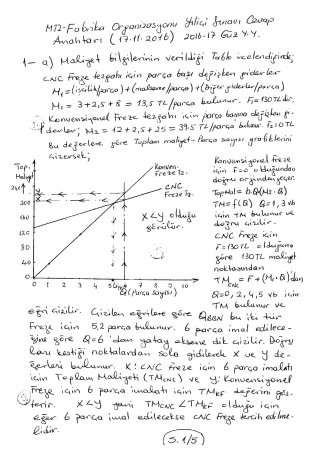 MT2-Fabrika Organizasyonu Yıliçi Sınavı Cevap
Anahtarı (17.11.2016) 2016-17 Güz Y.Y.
1- a) Maliyet bilgilerinin verildiği Tablo incelendiğinde;
CNC Freze tezgahı için parça başı değişken giderler
M1=(işçilik/parça)+(malzeme/parça)+(diğer/parça)
M1 = 3+2,5+8 = 13,5 TL/parça bulunur. F1=130TL'dir.
Konvansiyonel Freze tezgahı için parça başına değişken gi-
derler; M2 = 12+2,5+25 = 39.5 TL/parça bulunur. F2=0TL
Bu değerlere göre Toplam maliyet-Parça sayısı grafiklerini
çizersek;
Top.
Maliyet
Konven.
Freze Tz.
CNC
Freze Tz.
300
200
160
120
80
40
0 1 2 3 4 5 6 7 8 9 10
Q(Parça Sayısı)
X<Y olduğu
görülür.
Konvansiyonel Freze
için F=0 olduğundan
doğru orijinden geçer.
TopMal=
TM=f(Q) Q=1, 3 vb
için TM bulunur ve
doğru çizilir.
CNC Freze için
F=130TL olduğuna
göre 130TL maliyet
noktasından
TM CNC = F+(M1.Q)dan
Q=0, 2, 4, 5 vb için
TM bulunur ve
eğri çizilir. Çizilen eğrilere göre QBBN bu iki tür
Freze için 5,2 parça bulunur. 6 parça imal edilece-
ğine göre Q=6'dan yatay eksene dik çizilir. Doğru
ları kestiği noktalardan sola gidilerek X ve Y de-
ğerleri bulunur. X: CNC Freze için 6 parça imalatı
için Toplam Maliyeti (TMCNC) ve Y: Konvansiyonel
Freze için 6 parça imalatı için TMKF değerini gös-
terir. X<Y yani TMCNC<TMKF olduğu için
eğer 6 parça imal edilecekse CNC Freze tercih edilme-
lidir.
S.1/5